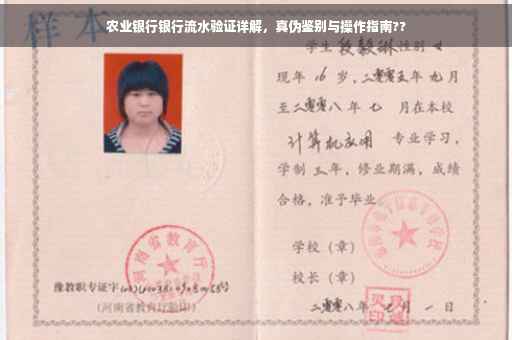 农业银行银行流水验证详解，真伪鉴别与操作指南??
样本
学生 段毅琳 性别 女
现年 16 岁，二零零五年 九月
至二零零八年 七 月在本校
计算机应用 专业学习，
学制 三 年，修业期满，成绩
合格，准予毕业
学校（章）
校长（章）
二零零八年 七 月 一 日
河南省教育厅
豫教职专证字
(河南省教育厅验印)